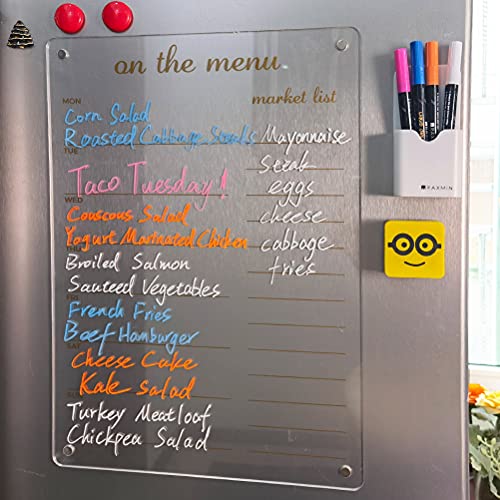 on the menu
market list
MON
Corn Salad
Roasted Cabbage Steaks
TUE
Taco Tuesday!
WED
Couscous Salad
Yogurt Marinated Chicken
THU
Broiled Salmon
Sauteed Vegetables
FRI
French Fries
Beef Hamburger
SAT
Cheese Cake
Kale Salad
Turkey Meatloaf
Chickpea Salad
Mayonnaise
Steak
eggs
cheese
cabbage
fries
PAXMIN